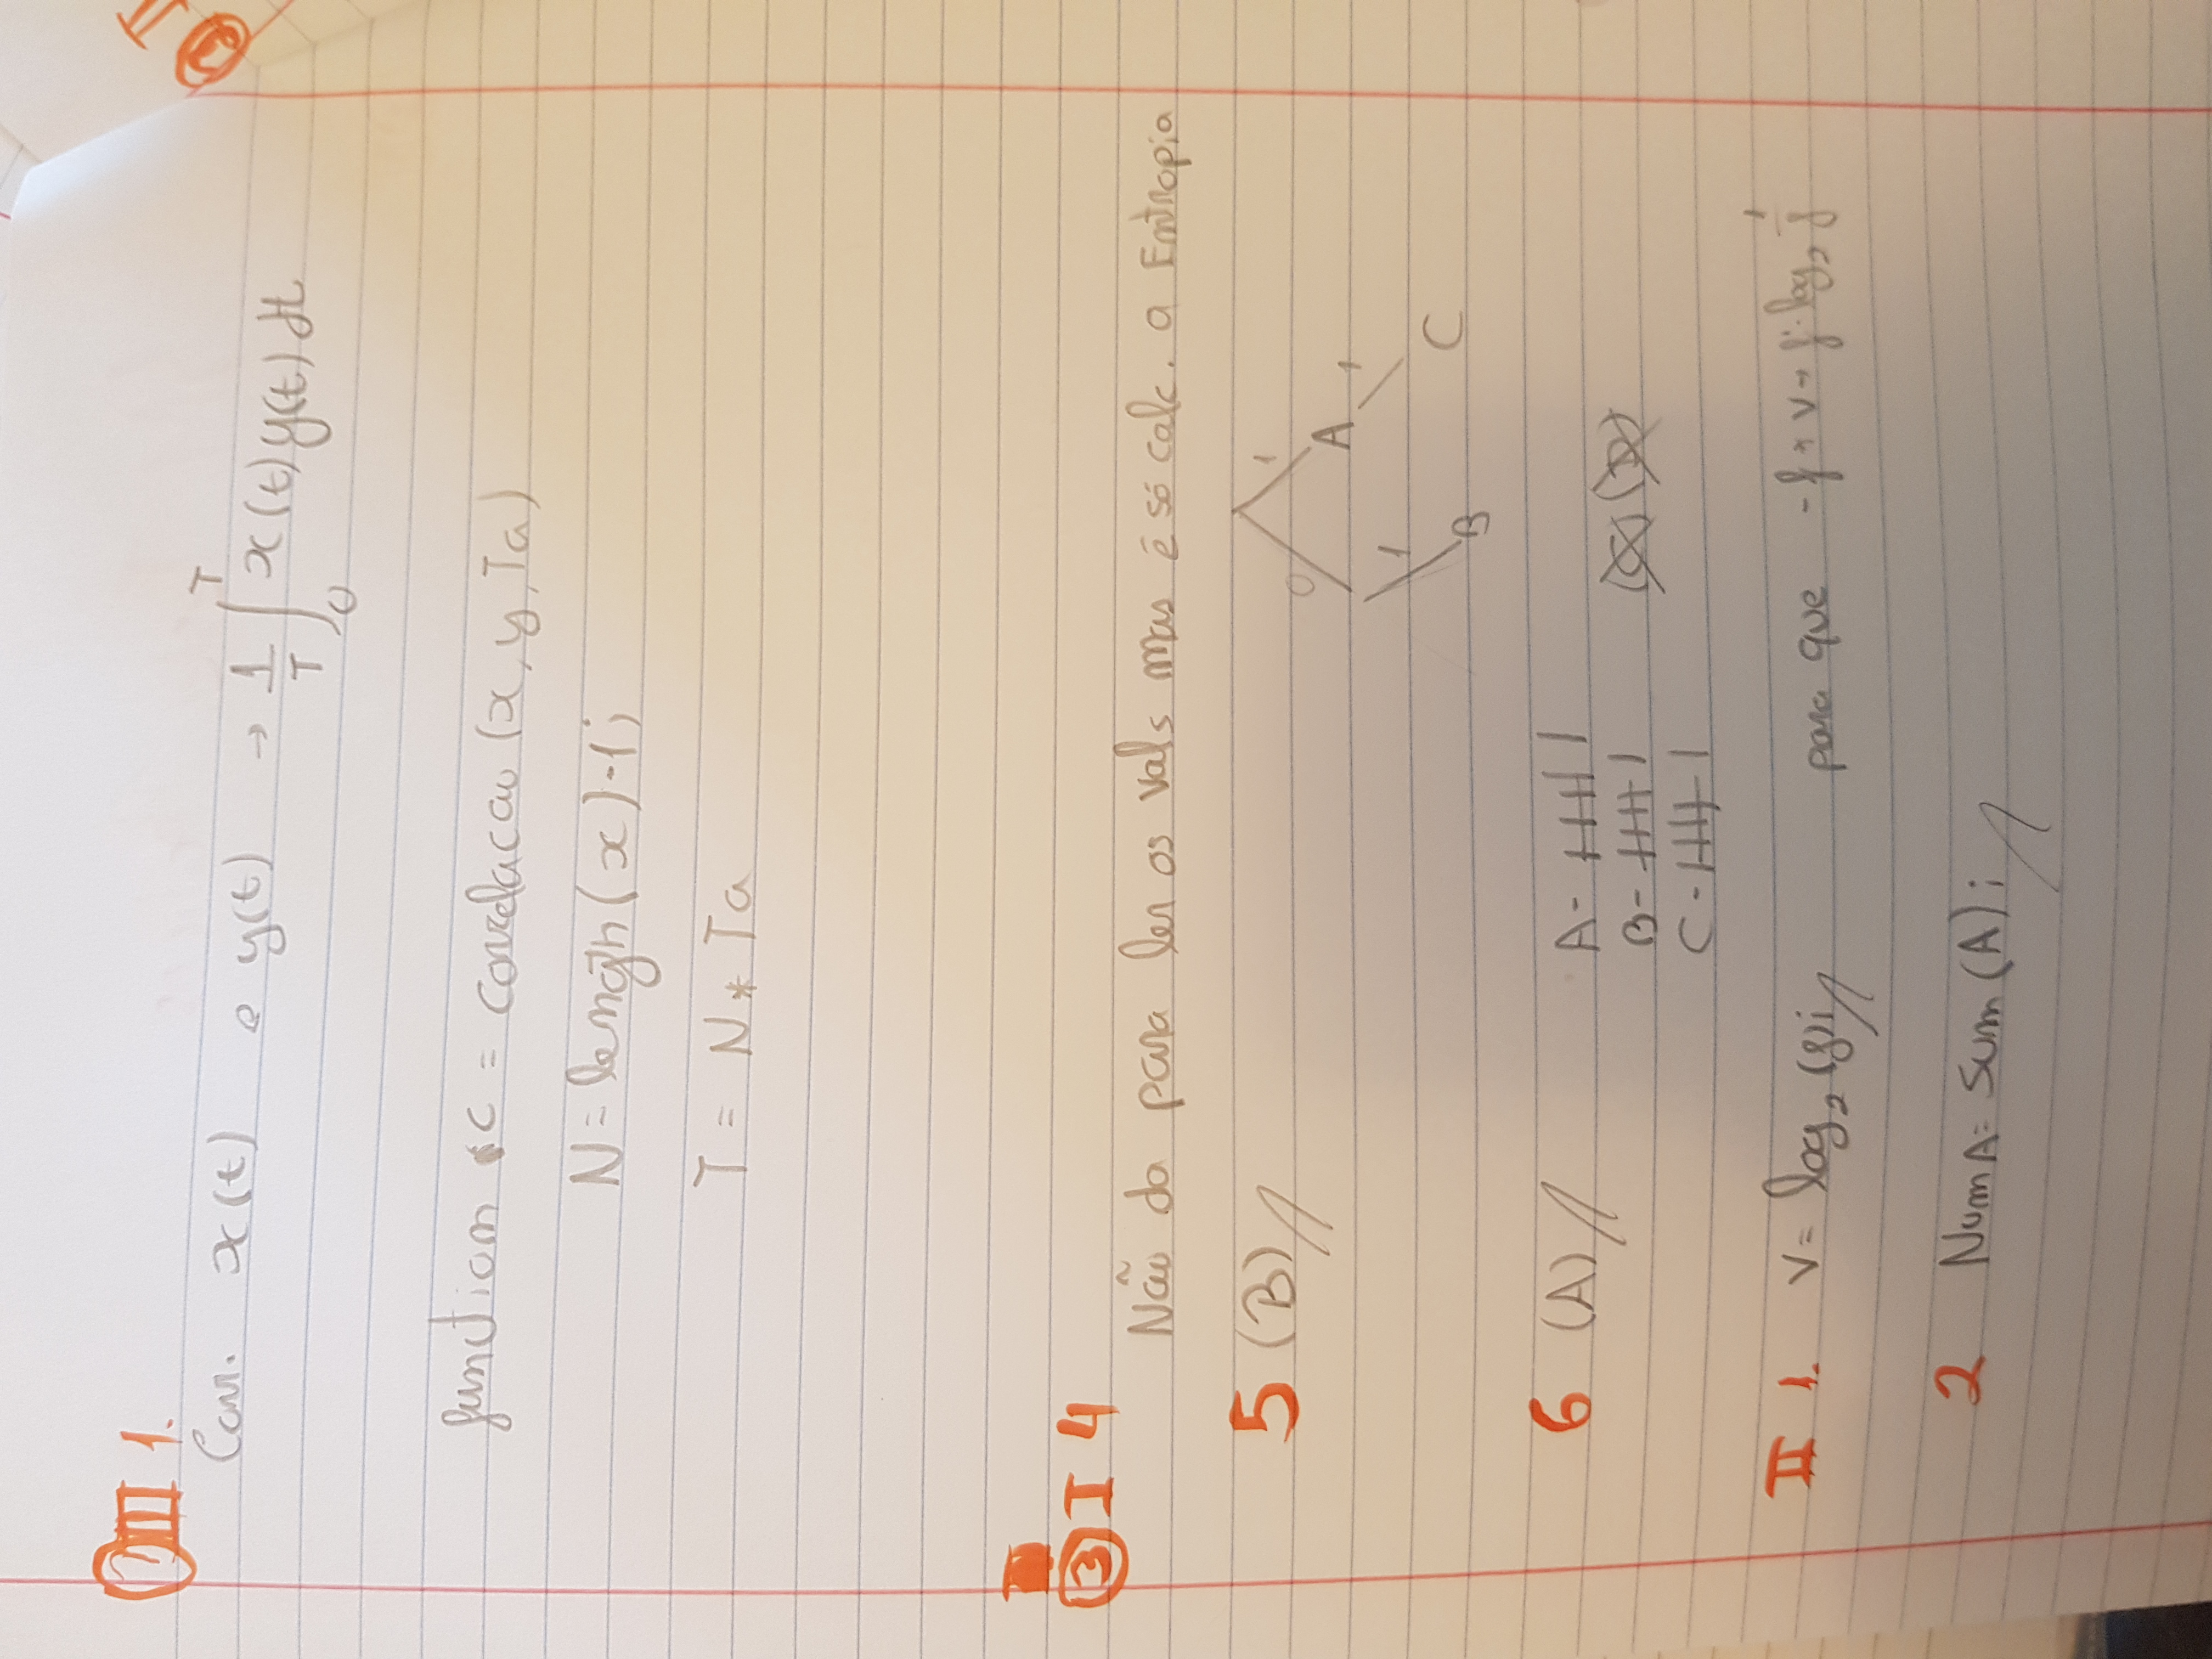 III 1.
Corr. x(t) e y(t) → 1/T ∫₀ᵀ x(t)y(t) dt
function c = Correlacao (x, y, Ta)
N = length(x)-1;
T = N * Ta
③ I 4
Não da para ler os vals mas é só calc. a Entropia
5 (B)//
0 1
A 1
1
B C
6 (A)//
A - 
B - 
C - 
II 1. v = log₂(f);// para que -f * v → f·log₂ 1/f
2 NumA = sum(A);//
② II